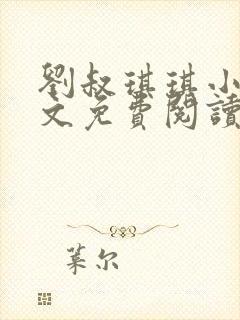 劉叔琪琪小
文免費閱讀
葉尔